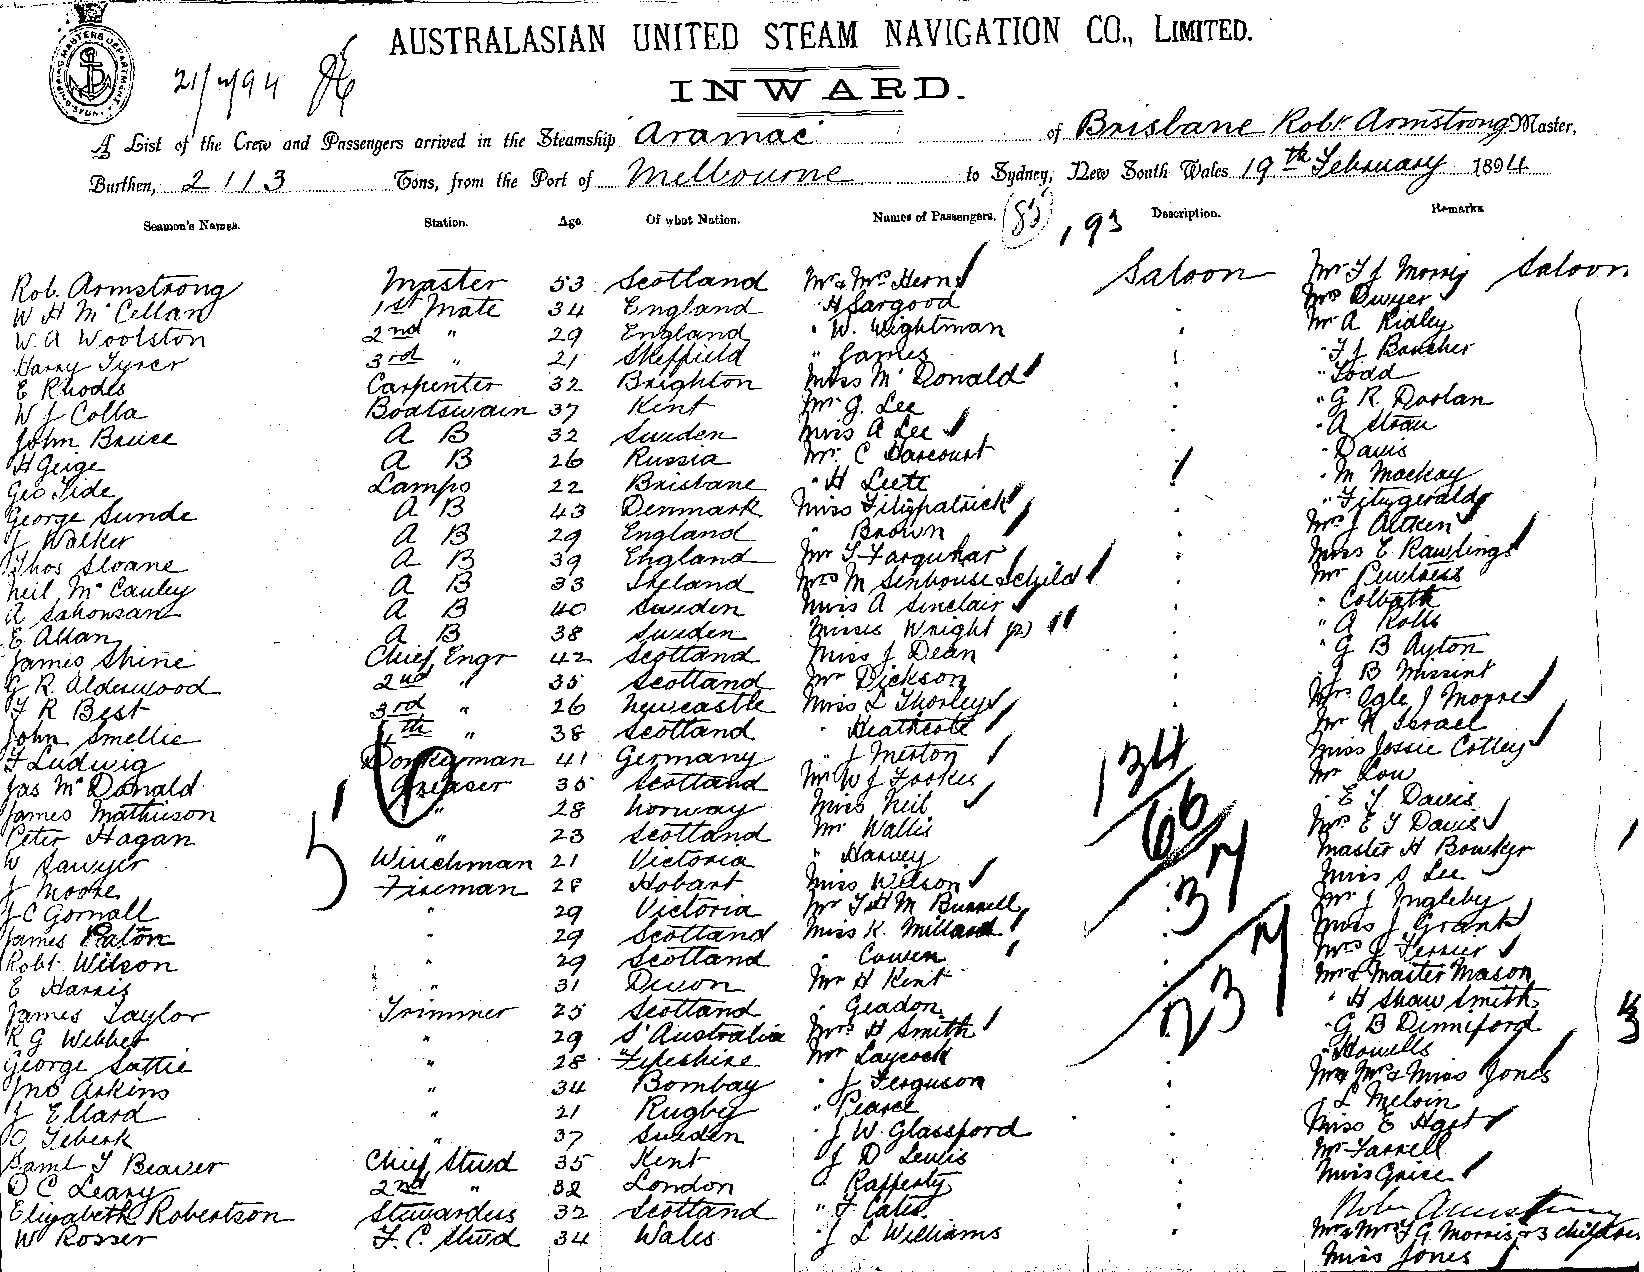 AUSTRALASIAN UNITED STEAM NAVIGATION CO., LIMITED.
21/2/94
INWARD.
A List of the Crew and Passengers arrived in the Steamship Aramac of Brisbane Robt Armstrong Master,
Burthen, 2113 Tons, from the Port of Melbourne to Sydney, New South Wales 19th February 1894
Seamen's Names. Station. Age. Of what Nation. Names of Passengers. (83) 193 Description. Remarks
Rob. Armstrong Master 53 Scotland Mr & Mrs Hern Saloon Mr T J Morris Saloon
W H McCellan 1st Mate 34 England " H Sargood Mrs Dwyer
W. A Woolston 2nd " 29 England " W. Wightman Mr A Ridley
Harry Tyrer 3rd " 21 Sheffield " James " T J Boucher
E Rhodes Carpenter 32 Brighton Miss McDonald " Todd
W J Colla Boatswain 37 Kent Mr G. Lee " G R Doolan
John Bruce A B 32 Sweden Miss A Lee " A Sloan
H Geige A B 26 Russia Mr C Darcourt " Davis
Geo Tide Lamps 22 Brisbane " H Leete " M Mackay
George Sunde A B 43 Denmark Miss Fitzpatrick " Fitzgerald
J Walker A B 29 England " Brown Mrs J Aitken
Thos Sloane A B 39 England Mr T Farquhar Miss E Rawlings
Neil McCauley A B 33 Ireland Mrs M Senhouse Schild Mr
A A B 40 Sweden Miss A Sinclair " Colbath
E Allan A B 38 Sweden Misses Wright (2) " A Rolls
James Shine Chief Engr 42 Scotland Miss J Dean " G B Ayton
G R Alderwood 2nd " 35 Scotland Mr Dickson " J B
T R Best 3rd " 26 Newcastle Miss L Thorley Mrs Ogle J Moores
John Smellie 4th " 38 Scotland " Heathcote Mr H Israel
F Ludwig Donkeyman 41 Germany " J Merton Miss Jessie Cotley
Jas McDonald Greaser 35 Scotland Mr W J Mr Low
James Mathieson " 28 Norway Miss Neil " E T Davis
Peter Hagan " 23 Scotland Mr Wallis Mrs E T Davis
W Sawyer Winchman 21 Victoria " Harvey Master H Bowker
J Moore Fireman 28 Hobart Miss Wilson Miss S Lee
J C Gornall " 29 Victoria Mr T H M Burrell Mr J Ingleby
James Paton " 29 Scotland Miss K. Millard Miss J Grant
Robt Wilson " 29 Scotland " Cowen Mrs J Ferrier
E Harris " 31 Devon Mr H Kent Mr & Master Mason
James Taylor Trimmer 25 Scotland " Geadon " H Shaw Smith
R G Webber " 29 S' Australia Mrs H Smith " G B Dinniford
George Sattie " 28 Fifeshire Mr Laycock " Howells
Jno Askins " 34 Bombay " J Ferguson Mr Mrs & Miss Jones
J Ellard " 21 Rugby " Pearce " L Melvin
O " 37 Sweden " J W. Glassford Miss E Hart
Saml T Beaver Chief Stwd 35 Kent " J D Lewis Mr Farrell
D C Leary 2nd " 32 London " Rafferty Miss Grice
Elizabeth Robertson Stewardess 32 Scotland " F Cates Robt Armstrong
W Rosser F. C. Stwd 34 Wales " J L Williams Mr & Mrs T G. Morris & 3 children
Miss Jones
134
66
37
237